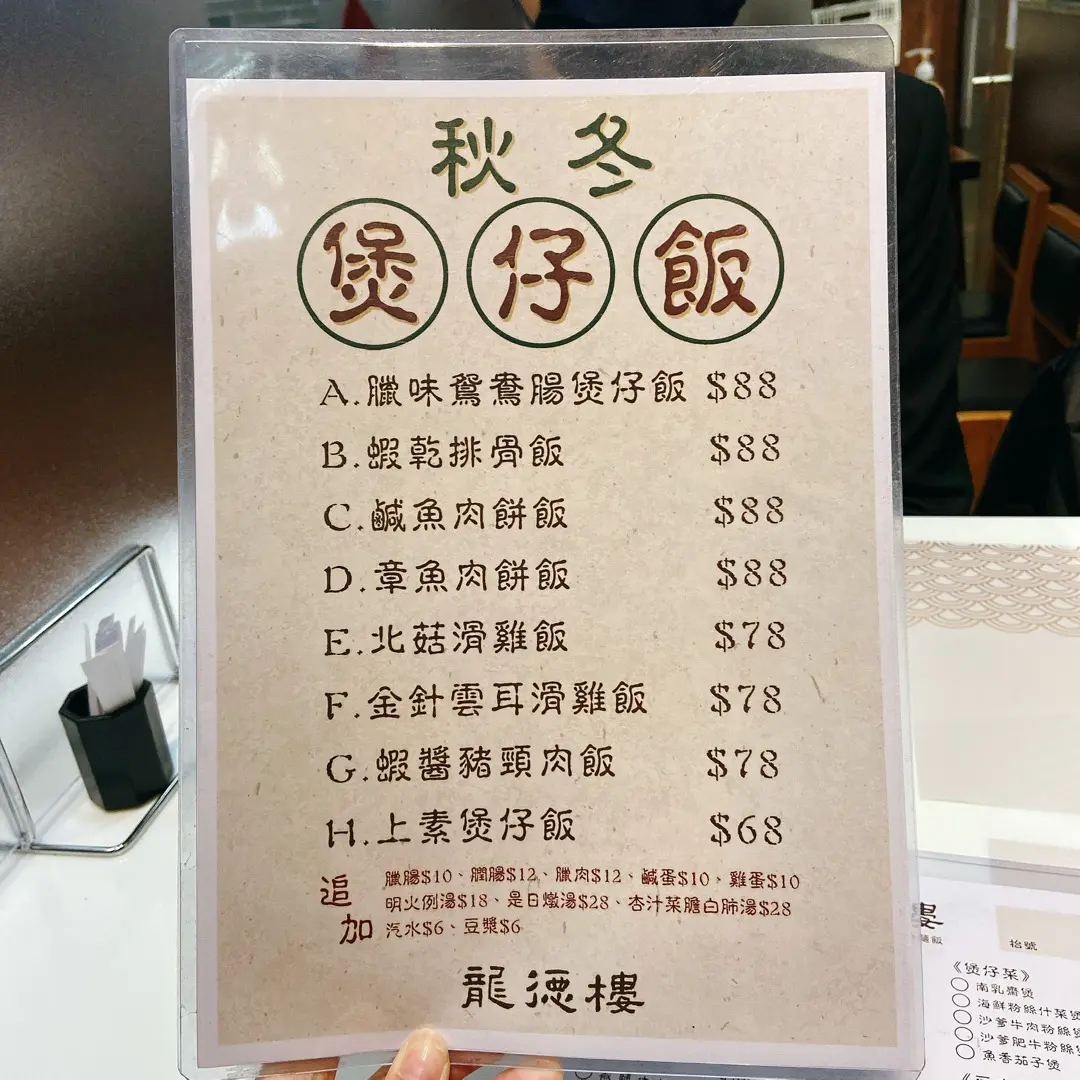 秋冬
煲仔飯
A.臘味鴛鴦腸煲仔飯 $88
B.蝦乾排骨飯 $88
C.鹹魚肉餅飯 $88
D.章魚肉餅飯 $88
E.北菇滑雞飯 $78
F.金針雲耳滑雞飯 $78
G.蝦醬豬頸肉飯 $78
H.上素煲仔飯 $68
追加
臘腸$10、膶腸$12、臘肉$12、鹹蛋$10、雞蛋$10
明火例湯$18、是日燉湯$28、杏汁菜膽白肺湯$28
汽水$6、豆漿$6
龍德樓
樓
飯
枱號
《煲仔菜》
南乳齋煲
海鮮粉絲什菜煲
沙爹牛肉粉絲
沙爹肥牛粉絲
魚香茄子煲